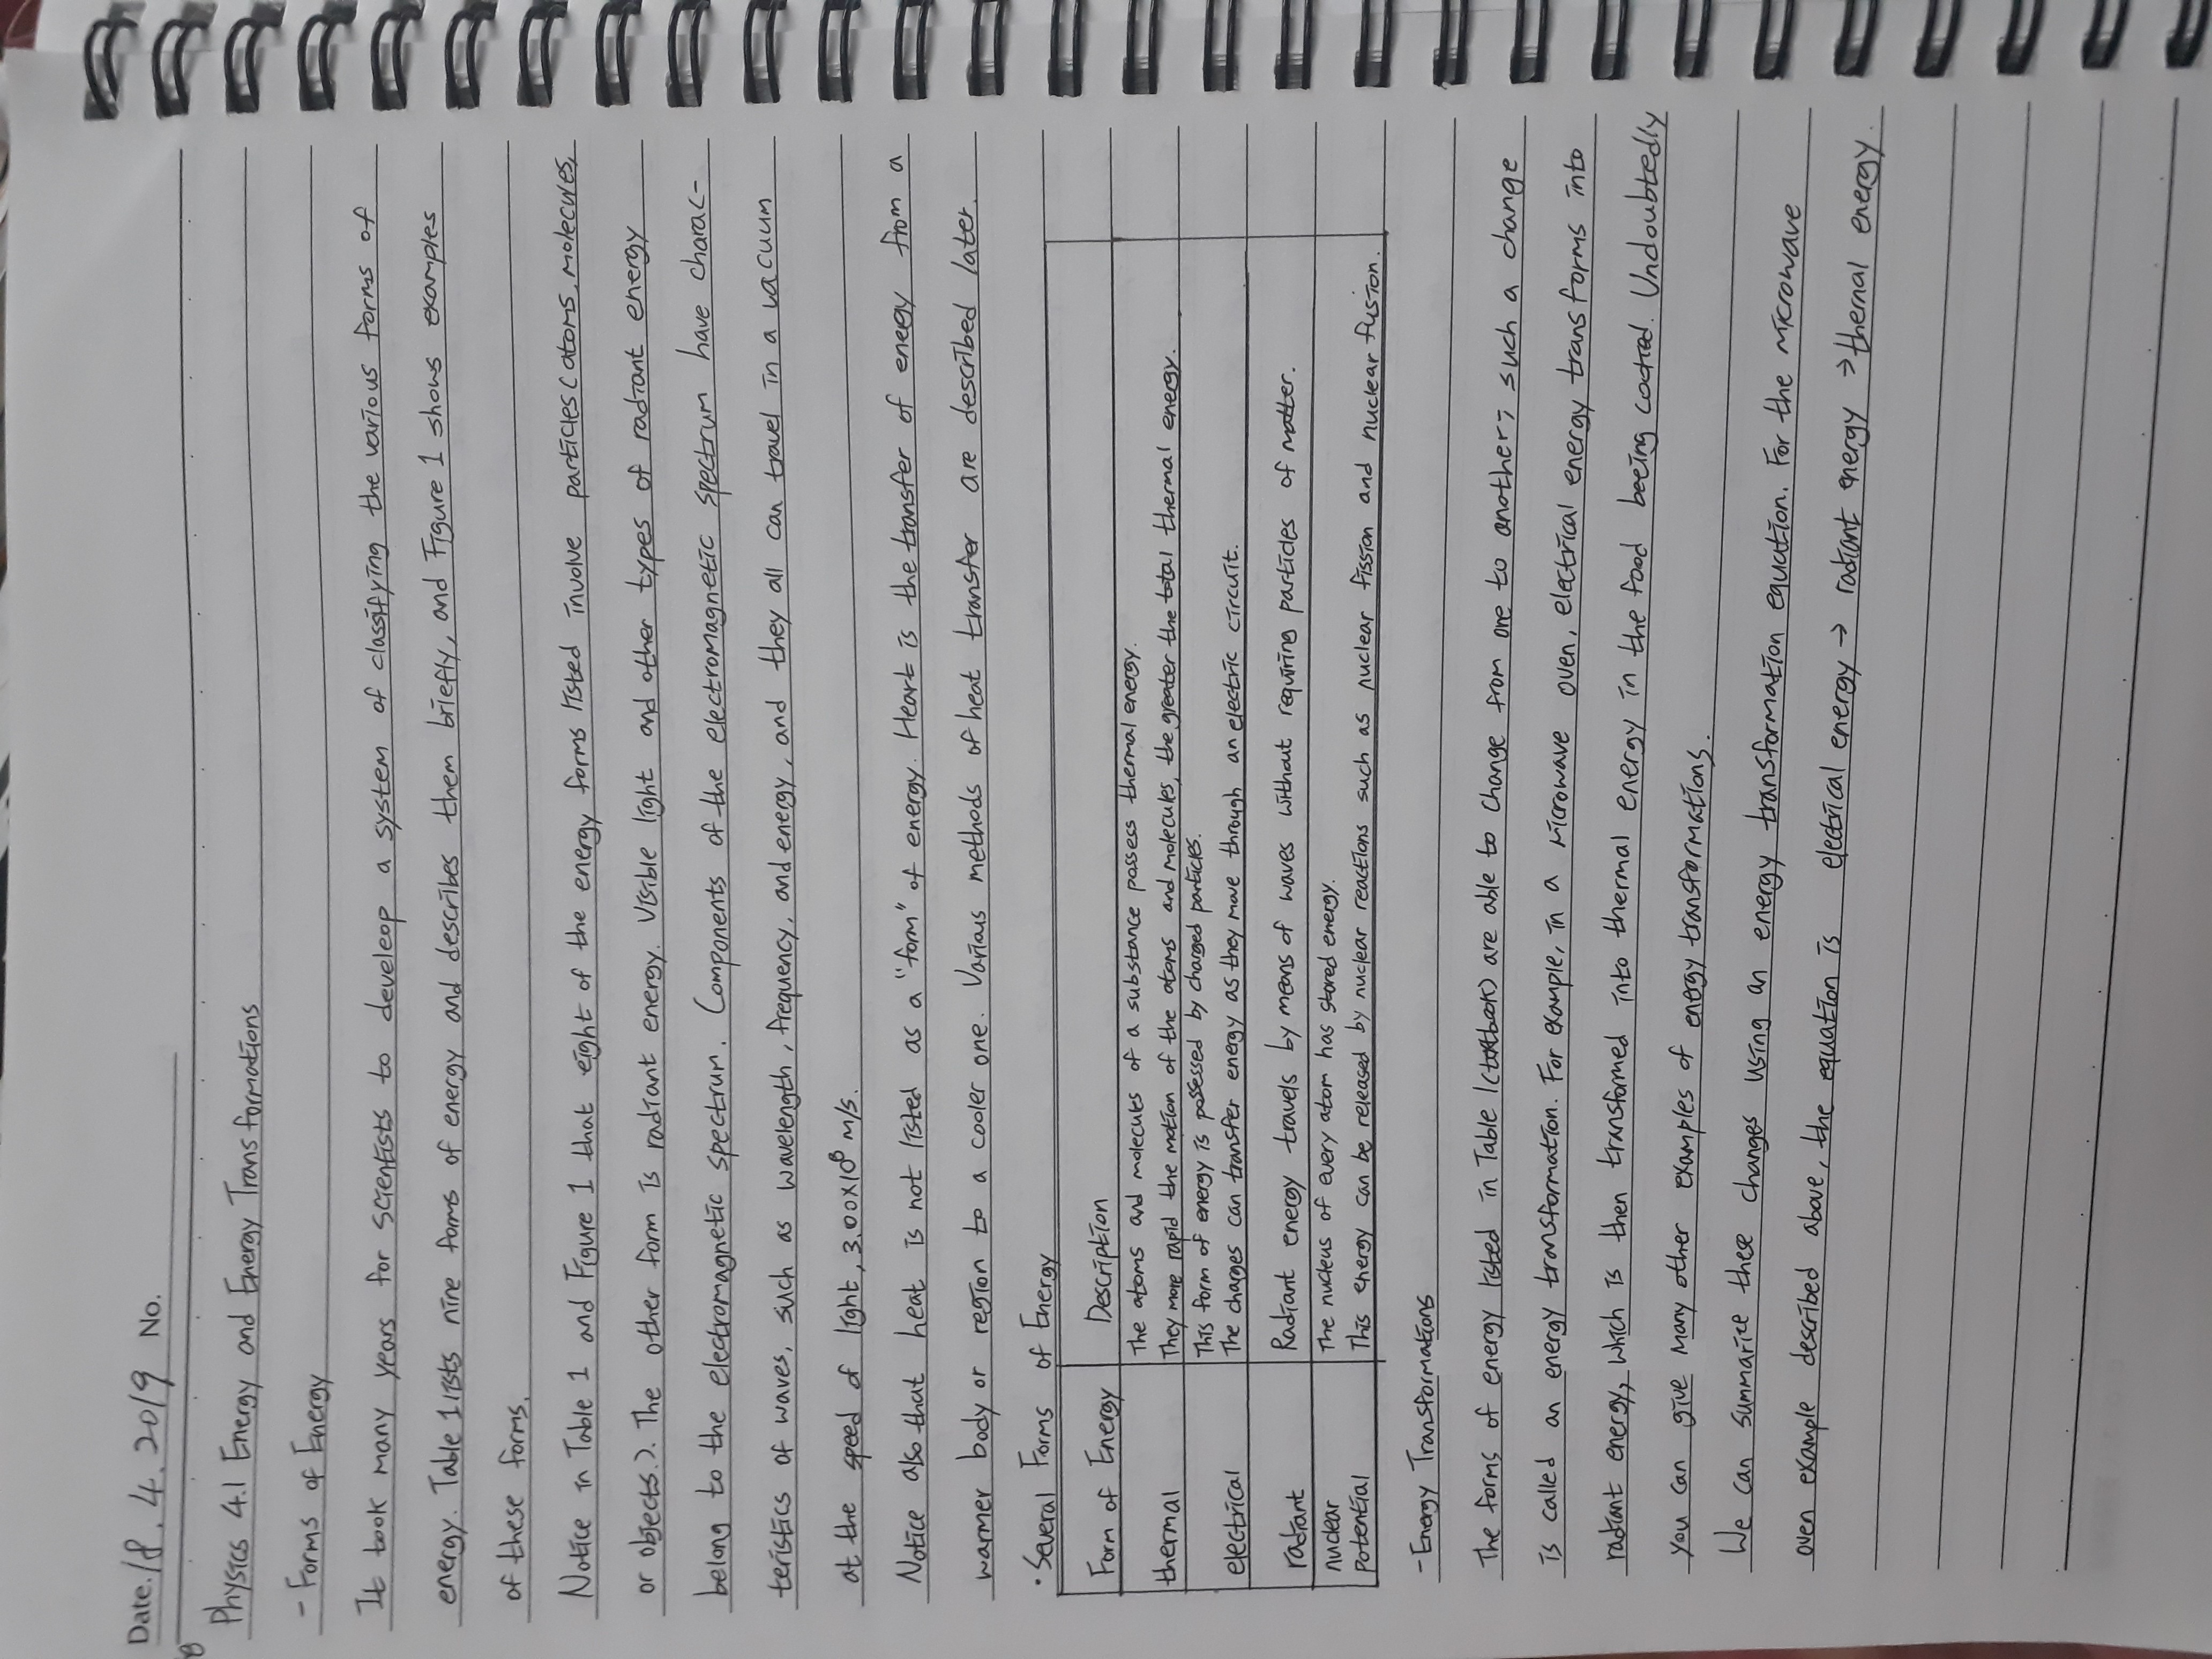 Date. 18. 4. 2019 No.
Physics 4.1 Energy and Energy Transformations
- Forms of Energy
It took many years for scientists to develeop a system of classifying the various forms of
energy. Table 1 lists nine forms of energy and describes them briefly, and Figure 1 shows examples
of these forms.
Notice in Table 1 and Figure 1 that eight of the energy forms listed involve particles (atoms, molecules,
or objects.). The other form is radiant energy. Visible light and other types of radiant energy
belong to the electromagnetic spectrum. Components of the electromagnetic spectrum have charac-
teristics of waves, such as wavelength, frequency, and energy, and they all can travel in a vacuum
at the speed of light, 3.00x10⁸ m/s.
Notice also that heat is not listed as a "form" of energy. Heart is the transfer of energy from a
warmer body or region to a cooler one. Various methods of heat transfer are described later.
• Several Forms of Energy
Form of Energy Description
thermal The atoms and molecules of a substance possess thermal energy.
They more rapid the motion of the atoms and molecules, the greater the total thermal energy.
electrical This form of energy is possessed by charged particles.
The charges can transfer energy as they move through an electric circuit.
radiant Radiant energy travels by means of waves without requiring particles of matter.
nuclear The nucleus of every atom has stored energy.
potential This energy can be released by nuclear reactions such as nuclear fission and nuclear fusion.
- Energy Transformations
The forms of energy listed in Table 1 are able to change from one to another; such a change
is called an energy transformation. For example, in a microwave oven, electrical energy transforms into
radiant energy, which is then transformed into thermal energy in the food beeing cooked. Undoubtedly
you can give many other examples of energy transformations.
We can summarize these changes using an energy transformation equation. For the microwave
oven example described above, the equation is electrical energy → radiant energy → thermal energy.